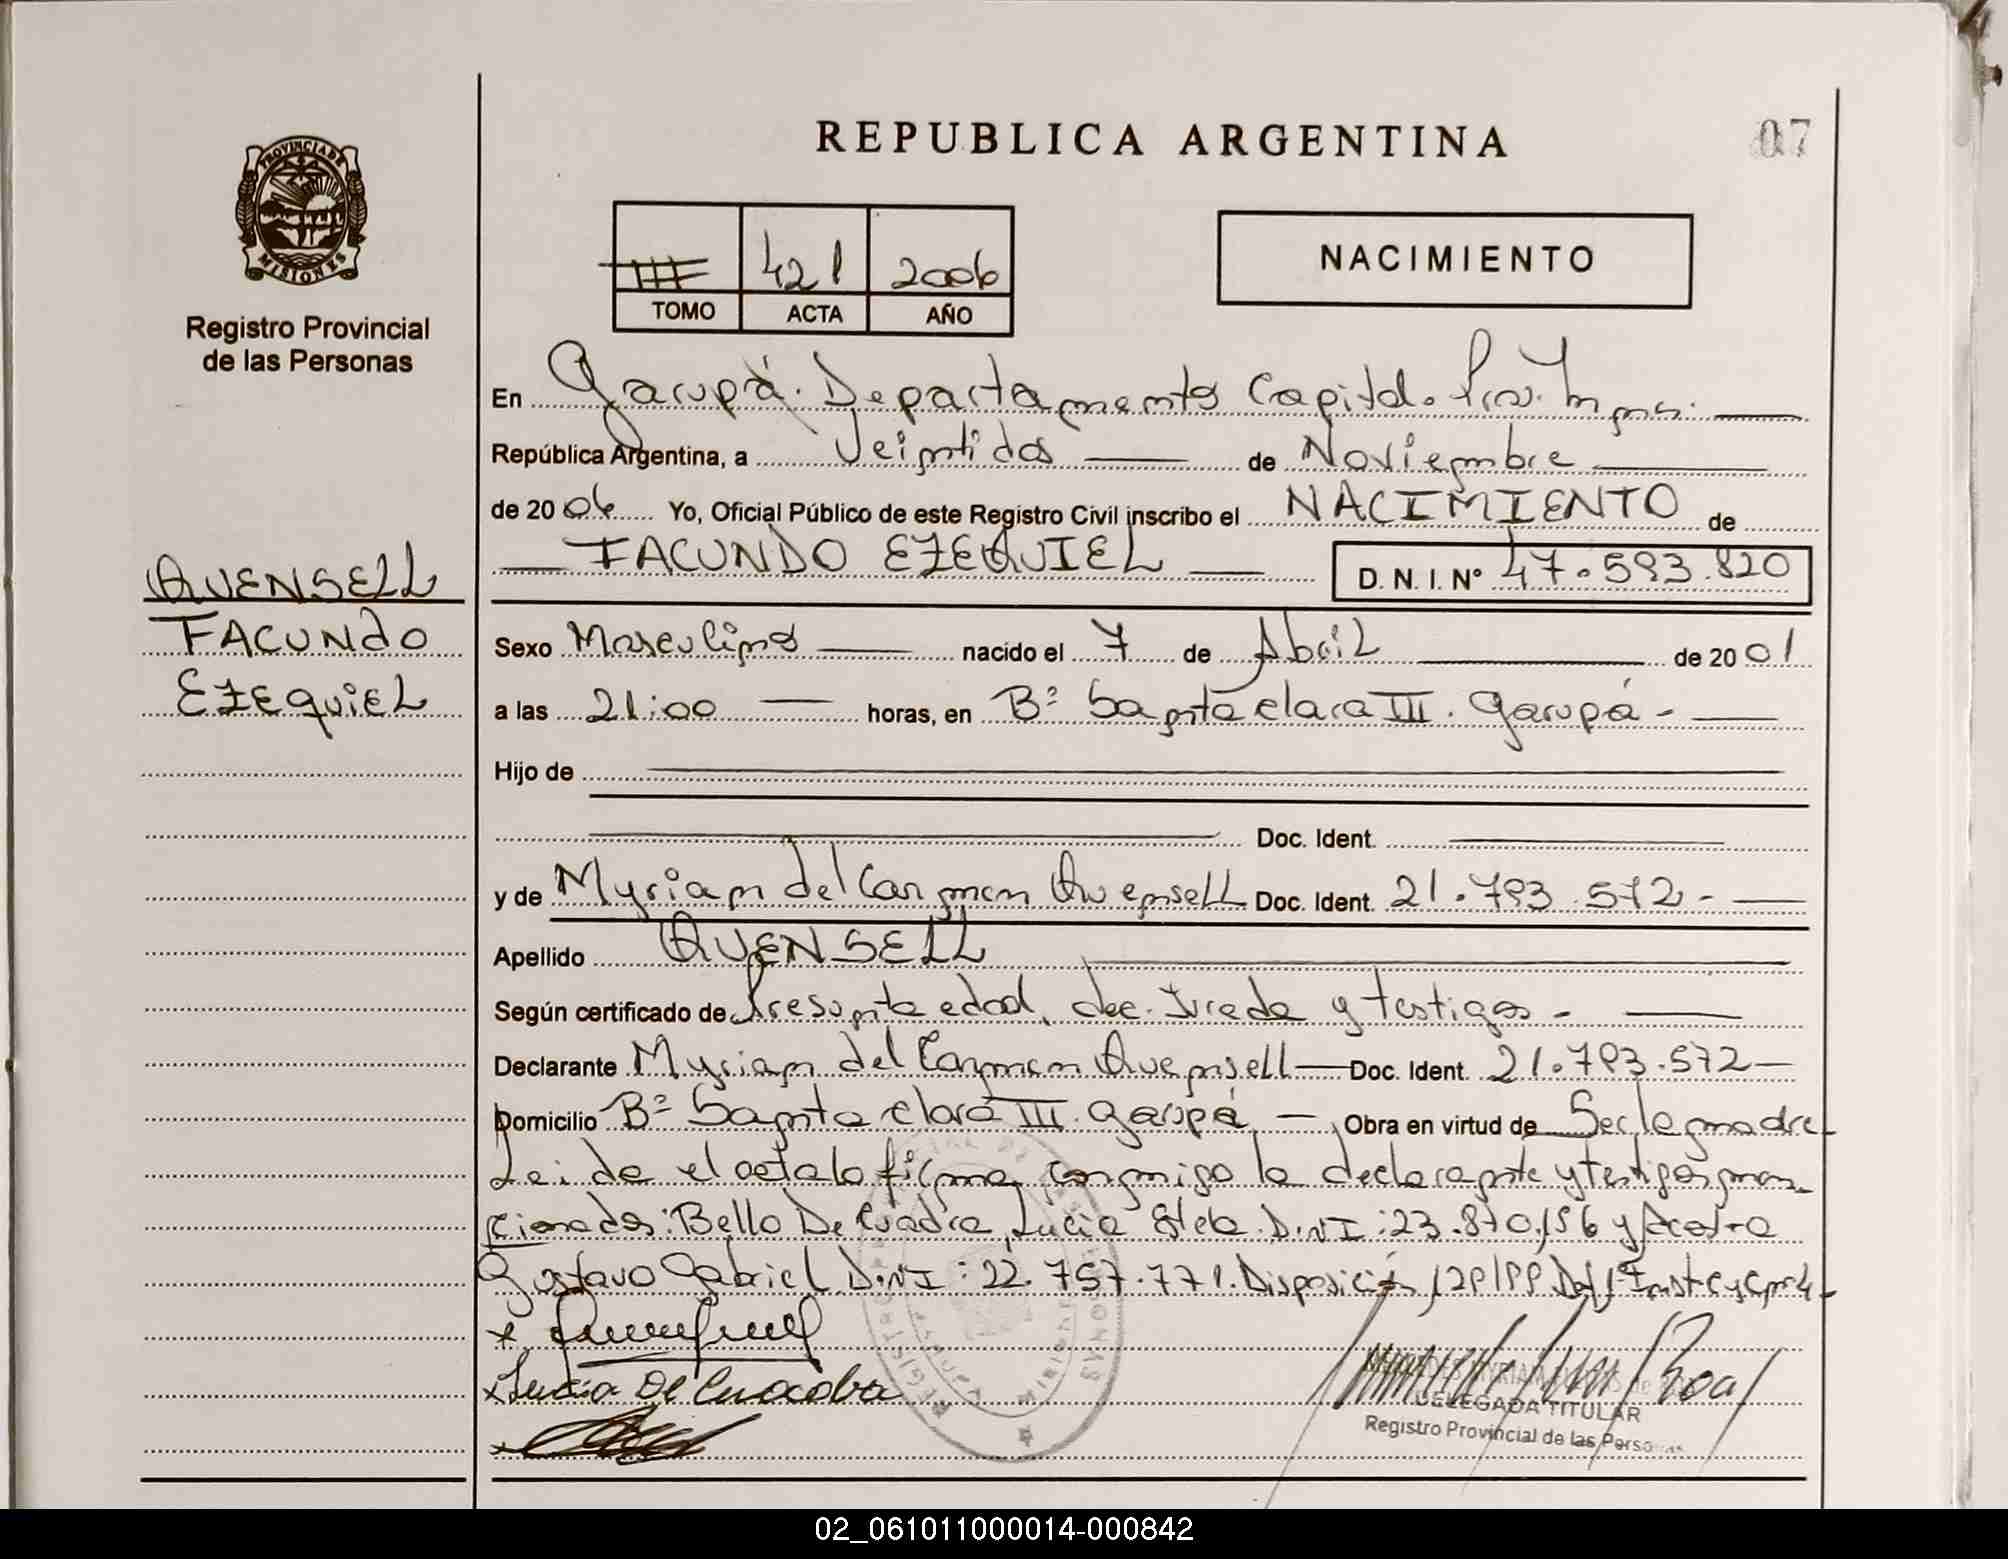 REPUBLICA ARGENTINA
07
PROVINCIA DE
MISIONES
Registro Provincial
de las Personas
421 2006
TOMO ACTA AÑO
NACIMIENTO
En Garupá. Departamento Capital. Prov. Mnes.
República Argentina, a Veintidos de Noviembre
de 2006 Yo, Oficial Público de este Registro Civil inscribo el NACIMIENTO de
FACUNDO EZEQUIEL D. N. I. Nº 47.593.820
QUENSELL
FACUNDO
EZEQUIEL
Sexo Masculino nacido el 7 de Abril de 2001
a las 21:00 horas, en Bº Santa Clara III. Garupá -
Hijo de
Doc. Ident.
y de Myriam del Carmen Quensell Doc. Ident. 21.793.572-
Apellido QUENSELL
Según certificado de Presunta edad, dec. Jurada y testigos -
Declarante Myriam del Carmen Quensell Doc. Ident. 21.793.572
Domicilio Bº Santa Clara III. Garupá Obra en virtud de Ser la madre
Leida el acta la firma conmigo la declarante y testigos men-
cionados: Bello De Cuadra, Lucia D.N.I: 23.870.156 y Acosta
Gustavo Gabriel D.N.I: 22.757.771. Disposición
x
x Lucia De
x
DELEGADA TITULAR
Registro Provincial de las Personas
02_061011000014-000842